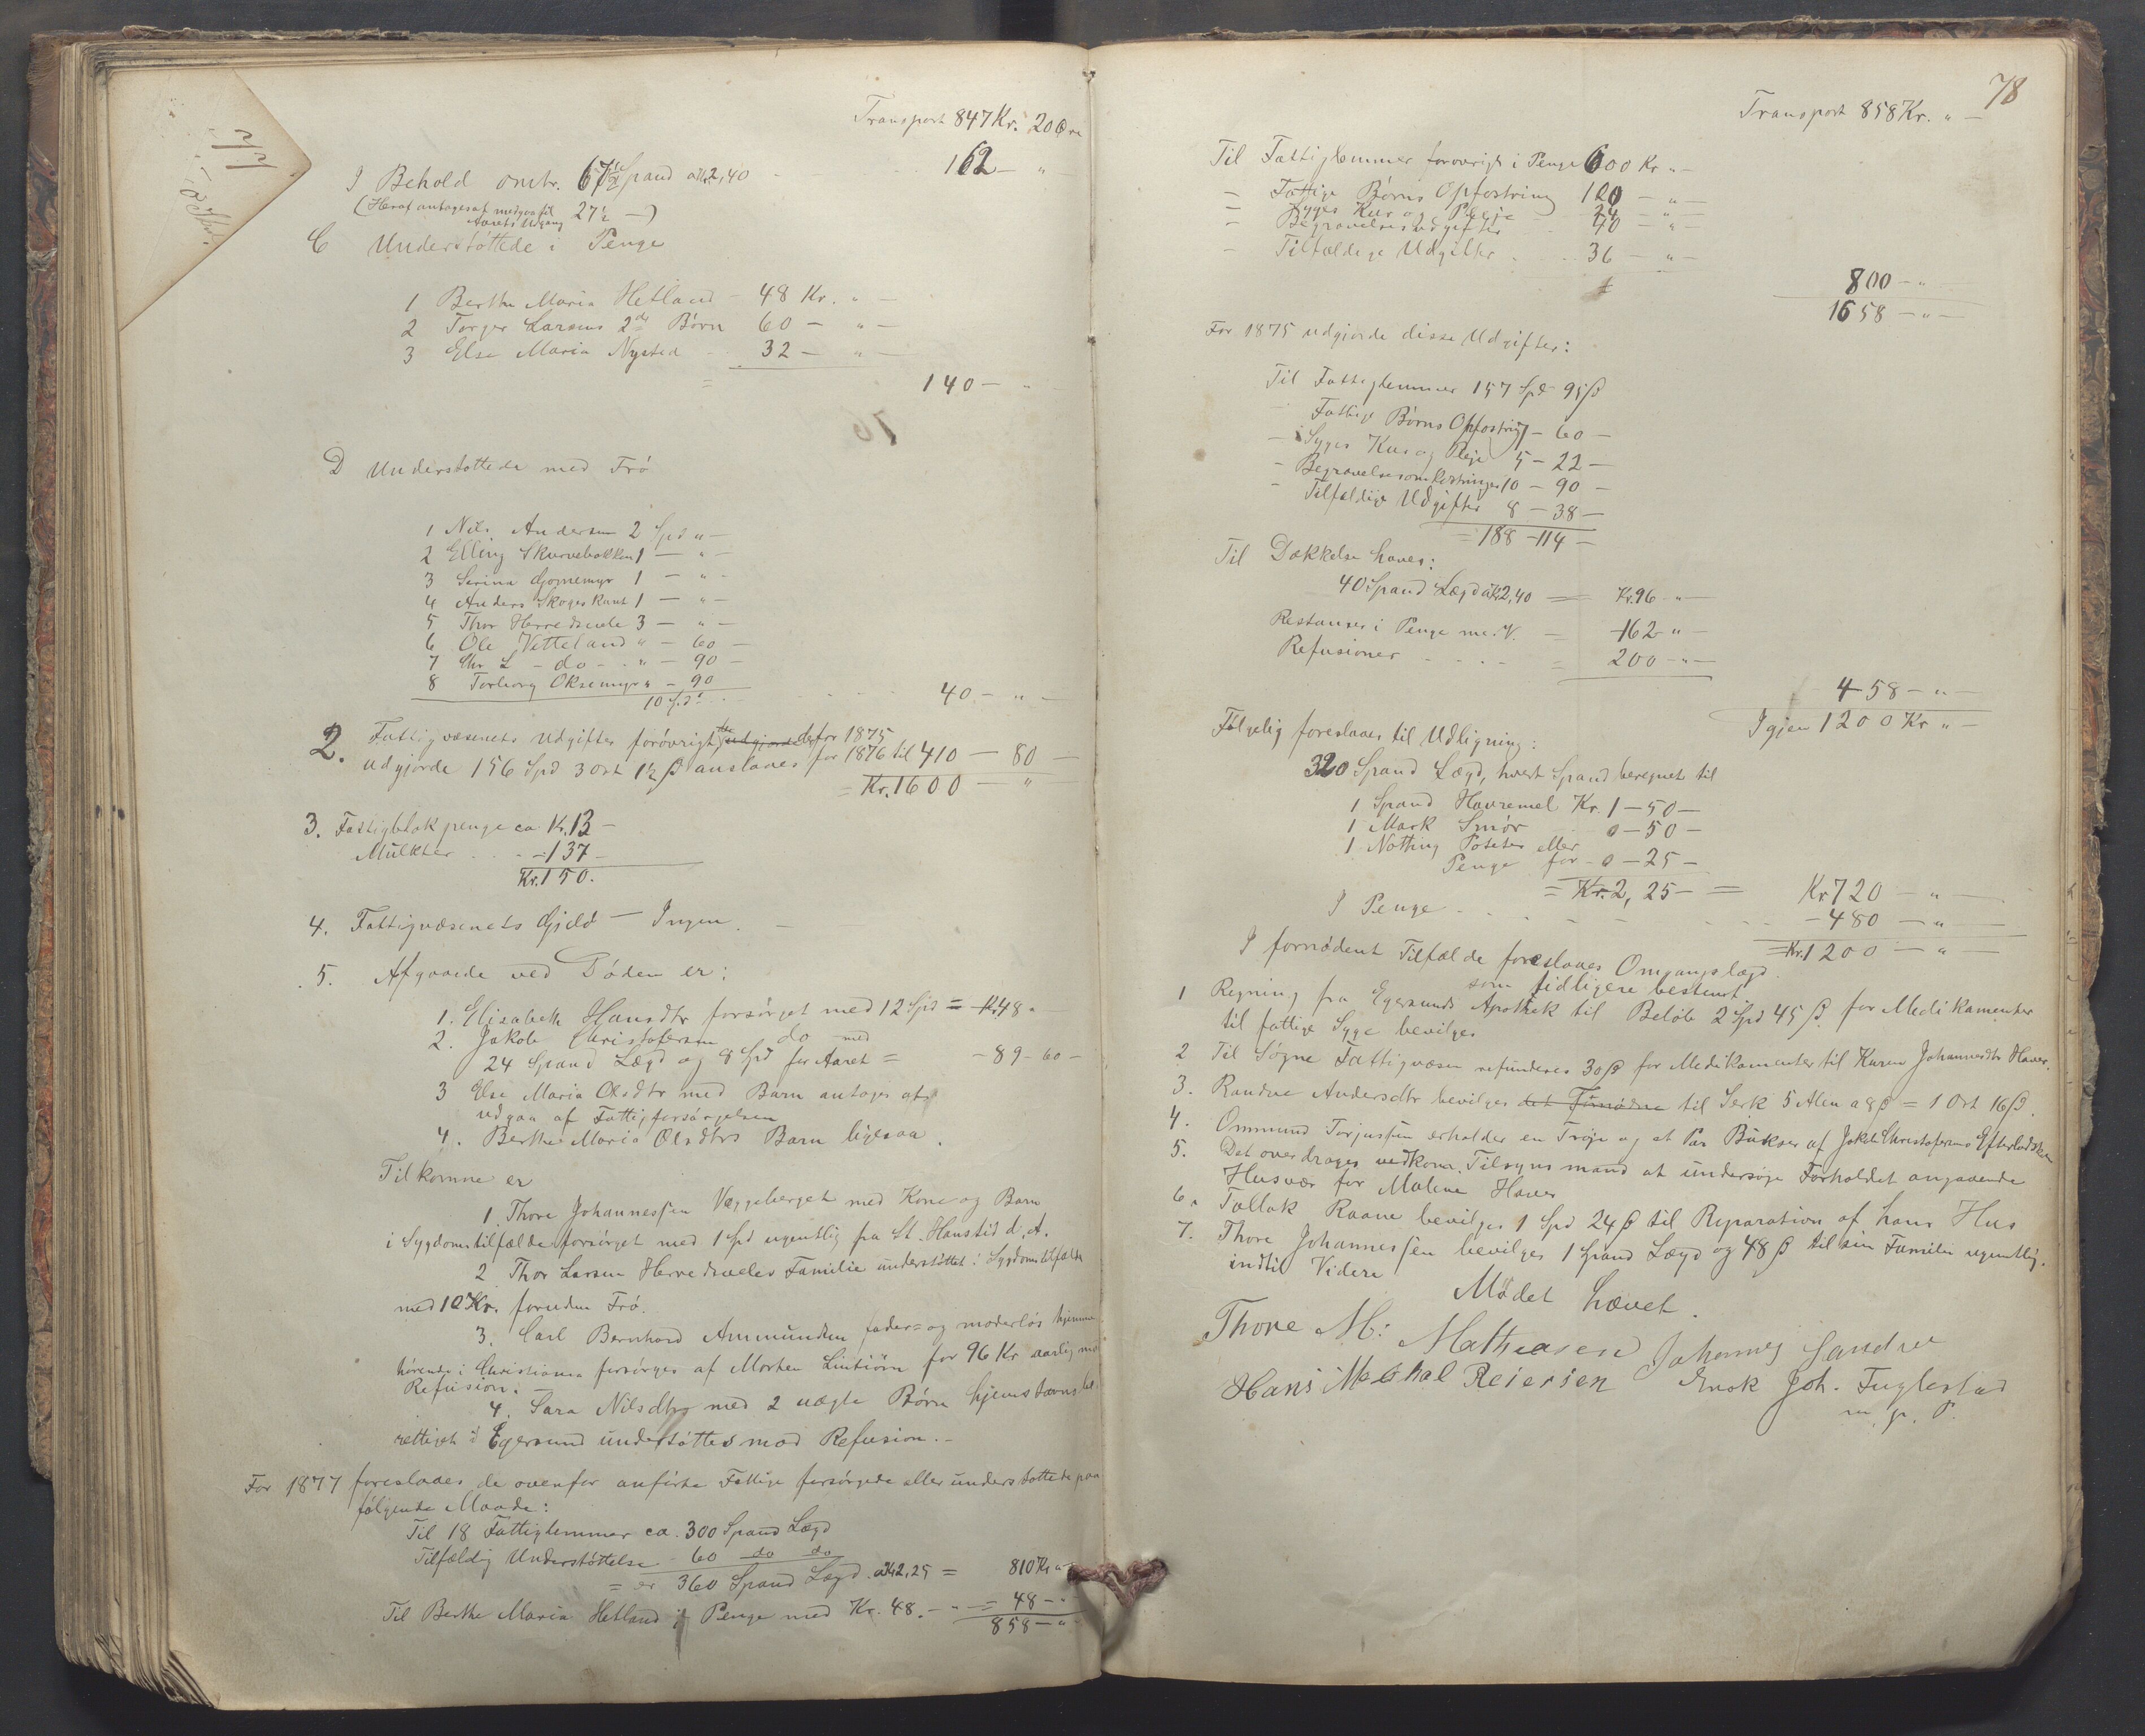 Transport 847 Kr. 20 Øre
I Behold omtr. 67½ Spand a Kr. 2,40 - - 162 — " —
(Heraf antages at medgaa til
Aarets Udgang 27½ —)
C Understøttede i Penge
1 Berthe Maria Hetland - 48 Kr. " —
2 Torger Larsens 2de Børn 60 — " —
3 Else Maria Nysted - - 32 — " —
= 140 — " —
D Understøttede med Frø
1 Nils Andersen 2 Spd " —
2 Elling Skarvebakken 1 — " —
3 Serina 1 — " —
4 Anders Skogeskant 1 — " —
5 Thor Herredsvele 3 — " —
6 Ole Vetteland " — 60 —
7 Chr. L - do - - " — 90 —
8 Torborg Oksemyr " — 90
10 Spd - - - - 40 — " —
2. Fattigvæsenets Udgifter forøvrigt, der for 1875
udgjorde 156 Spd 3 ort 1½ ß anslaaes for 1876 til 410 — 80 —
= Kr. 1600 — "
3. Fattigblok penge ca Kr. 13 —
Mulkter - - - 137 —
Kr. 150.
4. Fattigvæsenets Gjeld — Ingen.
5. Afgaaede ved Døden er:
1. Elisabeth Hansdtr forsørget med 12 Spd = Kr. 48 "
2. Jakob Christofersen do med
24 Spand Lægd og 8 Spd for Aaret = - 89 - 60 -
3 Else Maria Olsdtr med Barn antages at
udgaa af Fattigforsørgelsen
4. Berthe Maria Olsdtrs Barn ligesaa.
Tilkomne er
1. Thore Johannessen Væggeberget med Kone og Barn
i Sygdomstilfælde forsørget med 1 Spd ugentlig fra St. Hanstid d. A.
2 Thor Larsen Herredsveles Familie understøttet i Sygdomstilfælde
med 10 Kr. foruden Frø.
3. Carl Bernhard Ammundsen fader= og moderløs hjemme
hørende i Christiania forsørges af Morten for 96 Kr aarlig mod
Refusion.
4. Sara Nilsdtr med 2 uægte Børn hjemstavnsbe-
rettiget i Egersund understøttes mod Refusion. -
For 1877 foreslaaes de ovenfor anførte Fattige forsørgede eller understøttede paa
følgende Maade:
Til 18 Fattiglemmer ca. 300 Spand Lægd
Tilfældig Understøttelse - 60 do do
= er 360 Spand Lægd a Kr 2,25 = 810 Kr " -
Til Berthe Maria Hetland i Penge med Kr. 48. - " - = 48 - "
858 — "
78
Transport 858 Kr. " —
Til Fattiglemmer forøvrigt i Penge 600 Kr " —
= Fattige Børns Opfostring 100 — " —
= Syges Kur og Pleie 24 — " —
- Begravelsesudgifter 40 — " —
- Tilfældige Udgifter - - 36 — " —
800 — "
1658 — " —
For 1875 udgjorde disse Udgifter:
Til Fattiglemmer 157 Spd 95 ß
Fattige Børns Opfostring 7 — 60 —
- Syges Kur og Pleje 5 — 22 —
- Begravelsesomkostninger 10 — 90 —
- Tilfældige Udgifter 8 — 38 —
= 188 - 114 —
Til Dækkelse haves:
40 Spand Lægd a Kr 2,40 = Kr. 96 " —
Restanser i Penge m. V. = 162 " —
Refusioner - - - - = 200 - " —
458 — " —
Igjen 1200 Kr " —
Følgelig foreslaaes til Udligning:
320 Spand Lægd, hvert Spand beregnet til
1 Spand Havremel Kr. 1 — 50 —
1 Mark Smør - 0 — 50 —
1 Notting Poteter eller
Penge for - 0 — 25 —
= Kr. 2, 25 — = Kr 720 — " —
I Penge - - - - - - - 480 — " —
= Kr. 1200 — " —
I fornødent Tilfælde foreslaaes Omgangslægd
som tidligere bestemt.
1 Regning fra Egersunds Apothek til Beløb 2 Spd 45 ß for Medikamenter
til fattige Syge bevilges
2 Til Søgne Fattigvæsen refunderes 30 ß for Medikamenter til Karen Johannesdtr Haver.
3. Randve Andersdtr bevilges til Serk 5 Alen a 8 ß = 1 Ort 16 ß.
4. Ommund Torjussen erholder en Trøje og et Par Buxer af Jakob Christofersens Efterladsken
5. Det overdrages vedkom. Tilsynsmand at undersøge Forholdet angaaende
Husvær for Malene Haver
6. Tollak Raane bevilges 1 Spd 24 ß til Reparation af hans Hus
7. Thore Johannessen bevilges 1 Spand Lægd og 48 ß til sin Familie ugentlig.
indtil Videre
Mødet hævet.
Thore M: Mathiasen Johannes Sandve
Hans Mechal Reiersen Enok Joh. Fuglestad
m. p. P.